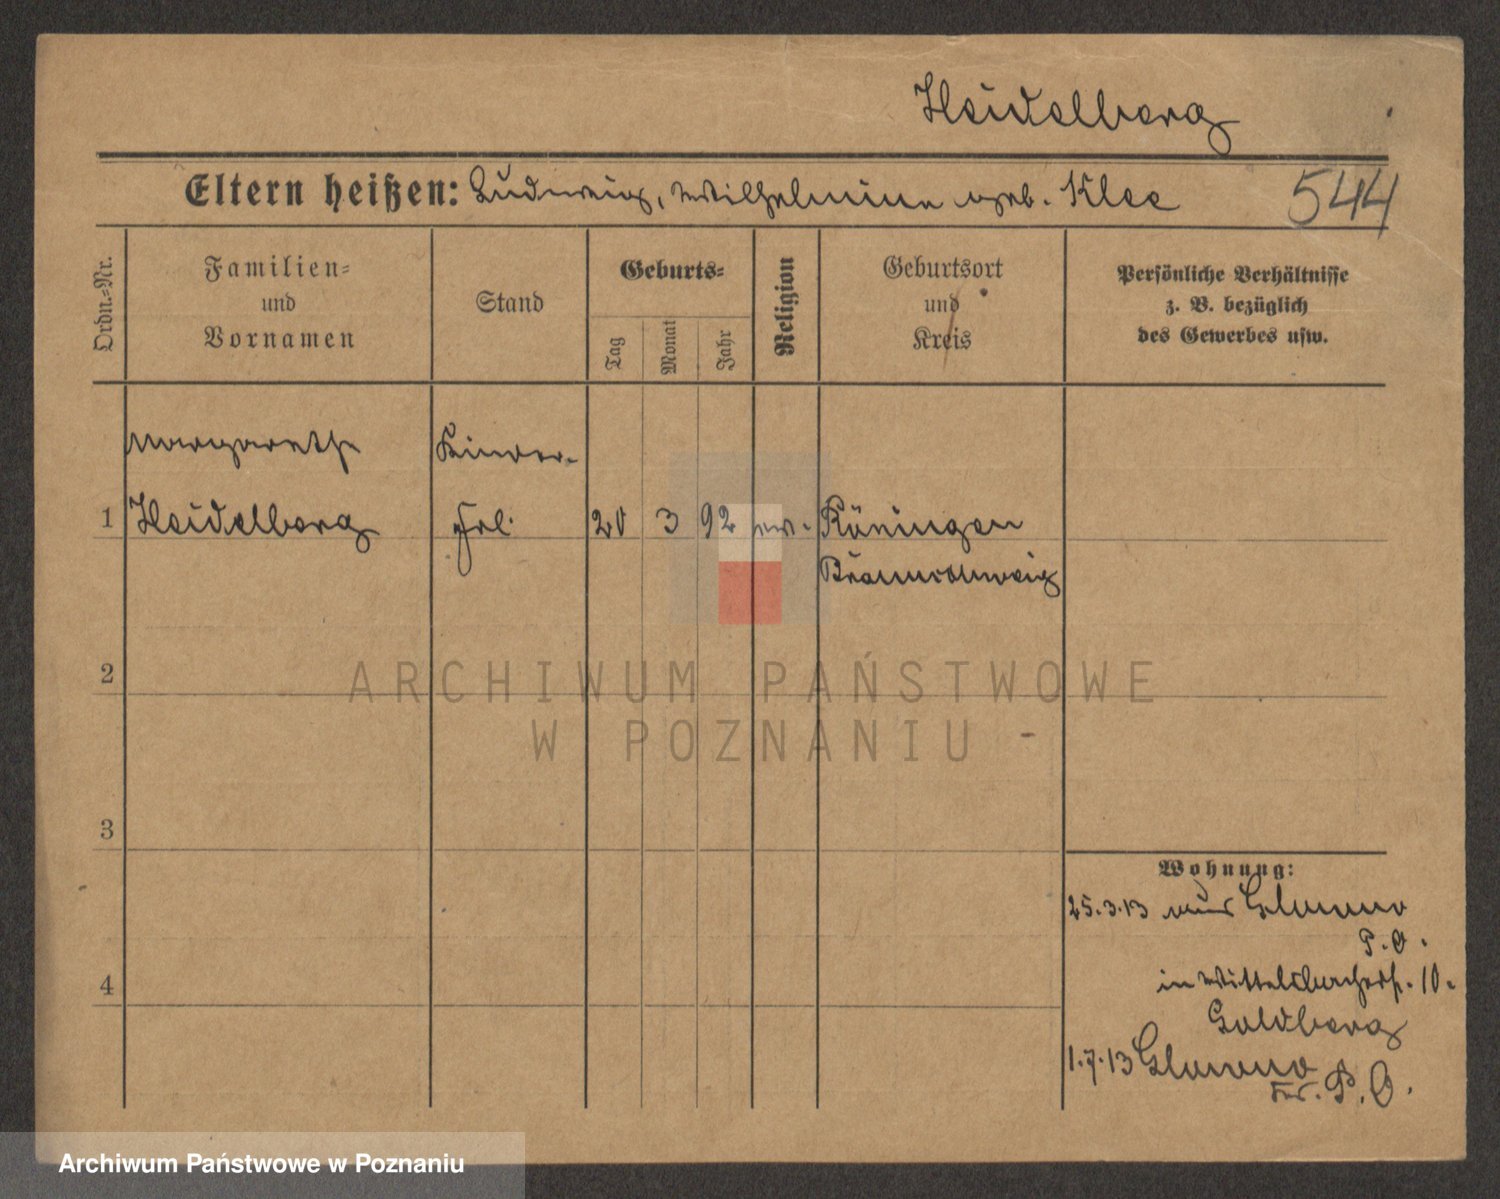 Heidelberg
Eltern heißen: Ludwig, Wilhelmine geb. Klee 544
Ordn.-Nr.
Familien-
und
Vornamen
Stand
Geburts-
Tag
Monat
Jahr
Religion
Geburtsort
und
Kreis
Persönliche Verhältnisse
z. B. bezüglich
des Gewerbes usw.
Margarethe Kinder-
1 Heidelberg Frl. 20 3 92 ev.
Braunschweig
2
3
4
Wohnung:
25.3.13 aus Glowno
P.O.
in Wittelsbacherst. 10.
Goldberg
1.7.13 Glowno
Kr. P.O.
ARCHIWUM PAŃSTWOWE
W POZNANIU -
Archiwum Państwowe w Poznaniu